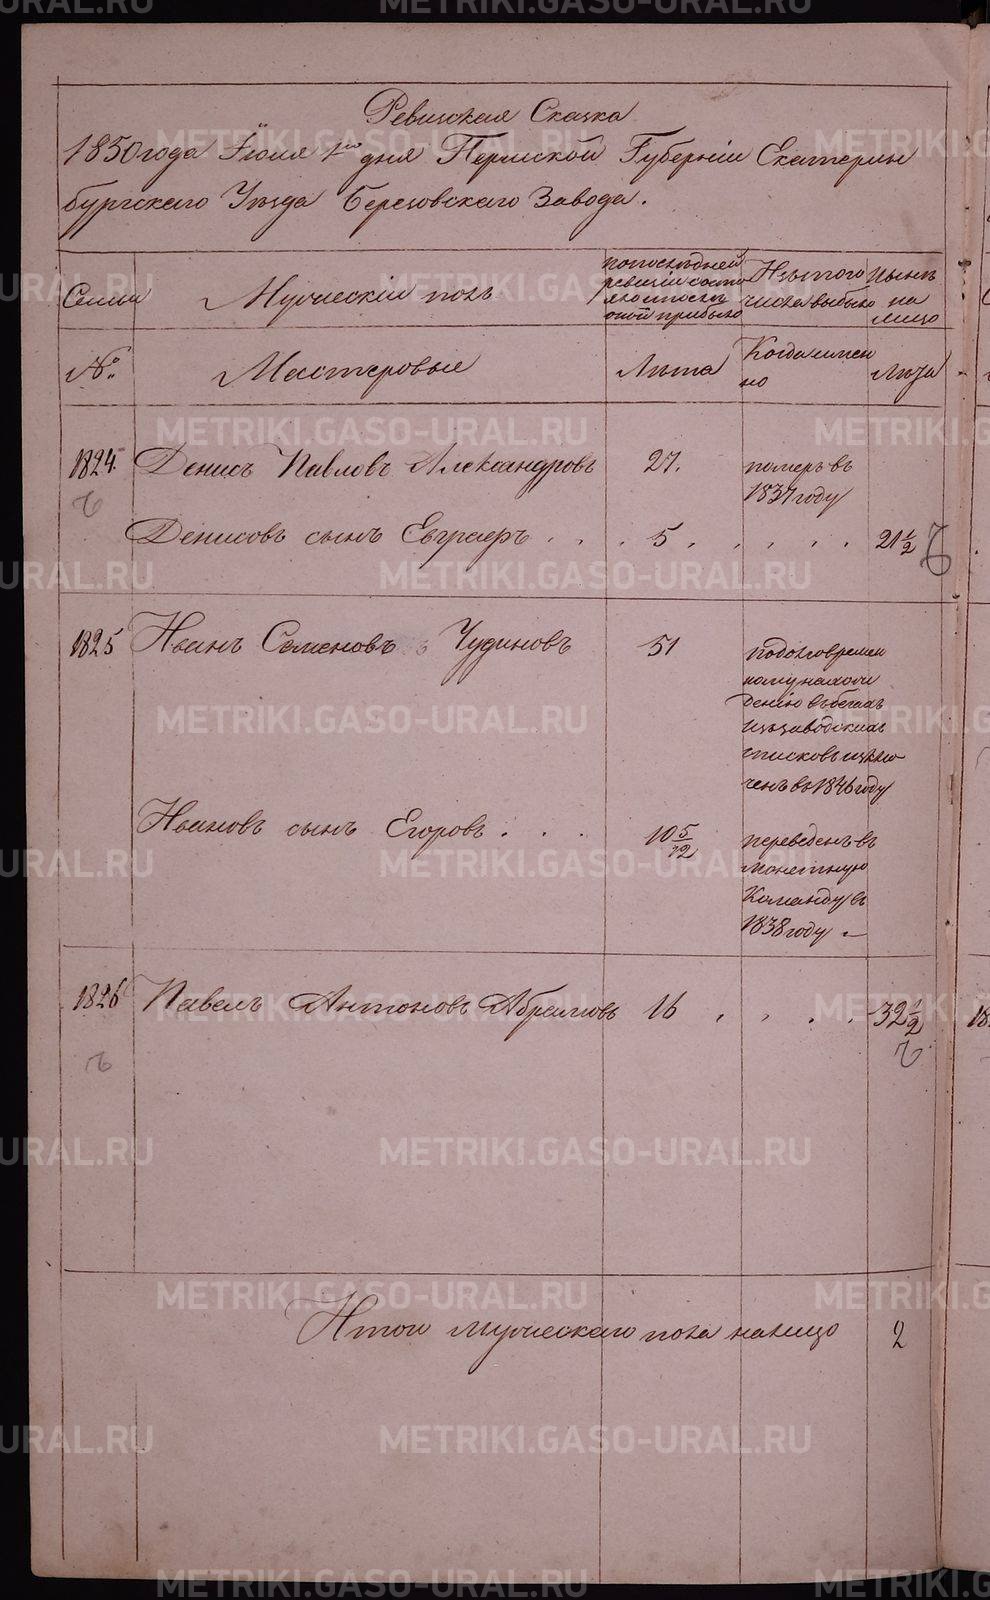 Ревизская Сказка
1850 года Іюля 1го дня Пермской Губерніи Екатерин
бургскаго Уѣзда Березовскаго Завода.
Семьи
Мужескій полъ
По послѣдней
ревизіи состо
яло и послѣ
оной прибыло
Изъ того
числа выбыло
Нынѣ
на
лицо
№.
Мастеровые
Лѣта
Когда имен
но
Лѣта
1824. Денисъ Павловъ Александровъ 27. померъ въ
1837 году
Денисовъ сынъ Евграфъ . . . 5 . . . . . 21 1/2
1825 Иванъ Семеновъ Чудиновъ 51 по долговремен
ному нахож
денію въ бегахъ
изъ заводскихъ
списковъ исклю
ченъ въ 1846 году
Ивановъ сынъ Егоровъ . . . 10 5/12 переведенъ въ
монетную
Команду въ
1838 году
1826 Павелъ Антоновъ Абрамовъ 16 . . . . 32 1/2
Итого мужескаго пола налицо 2
METRIKI.GASO-URAL.RU